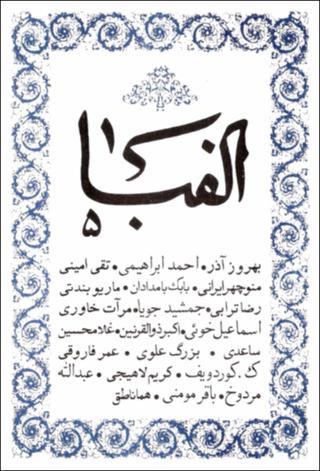 الفبا
۵
بهروز آذر • احمد ابراهیمی • تقی امینی
منوچهر ایرانی • بابک بامدادان • ماریو بندتی
رضا ترابی • جمشید جویا • مرآت خاوری
اسماعیل خوئی • اکبر ذوالقرنین • غلامحسین
ساعدی • بزرگ علوی • عمر فاروقی
ک. کوردویف • کریم لاهیجی • عبدالله
مردوخ • باقر مومنی • هما ناطق